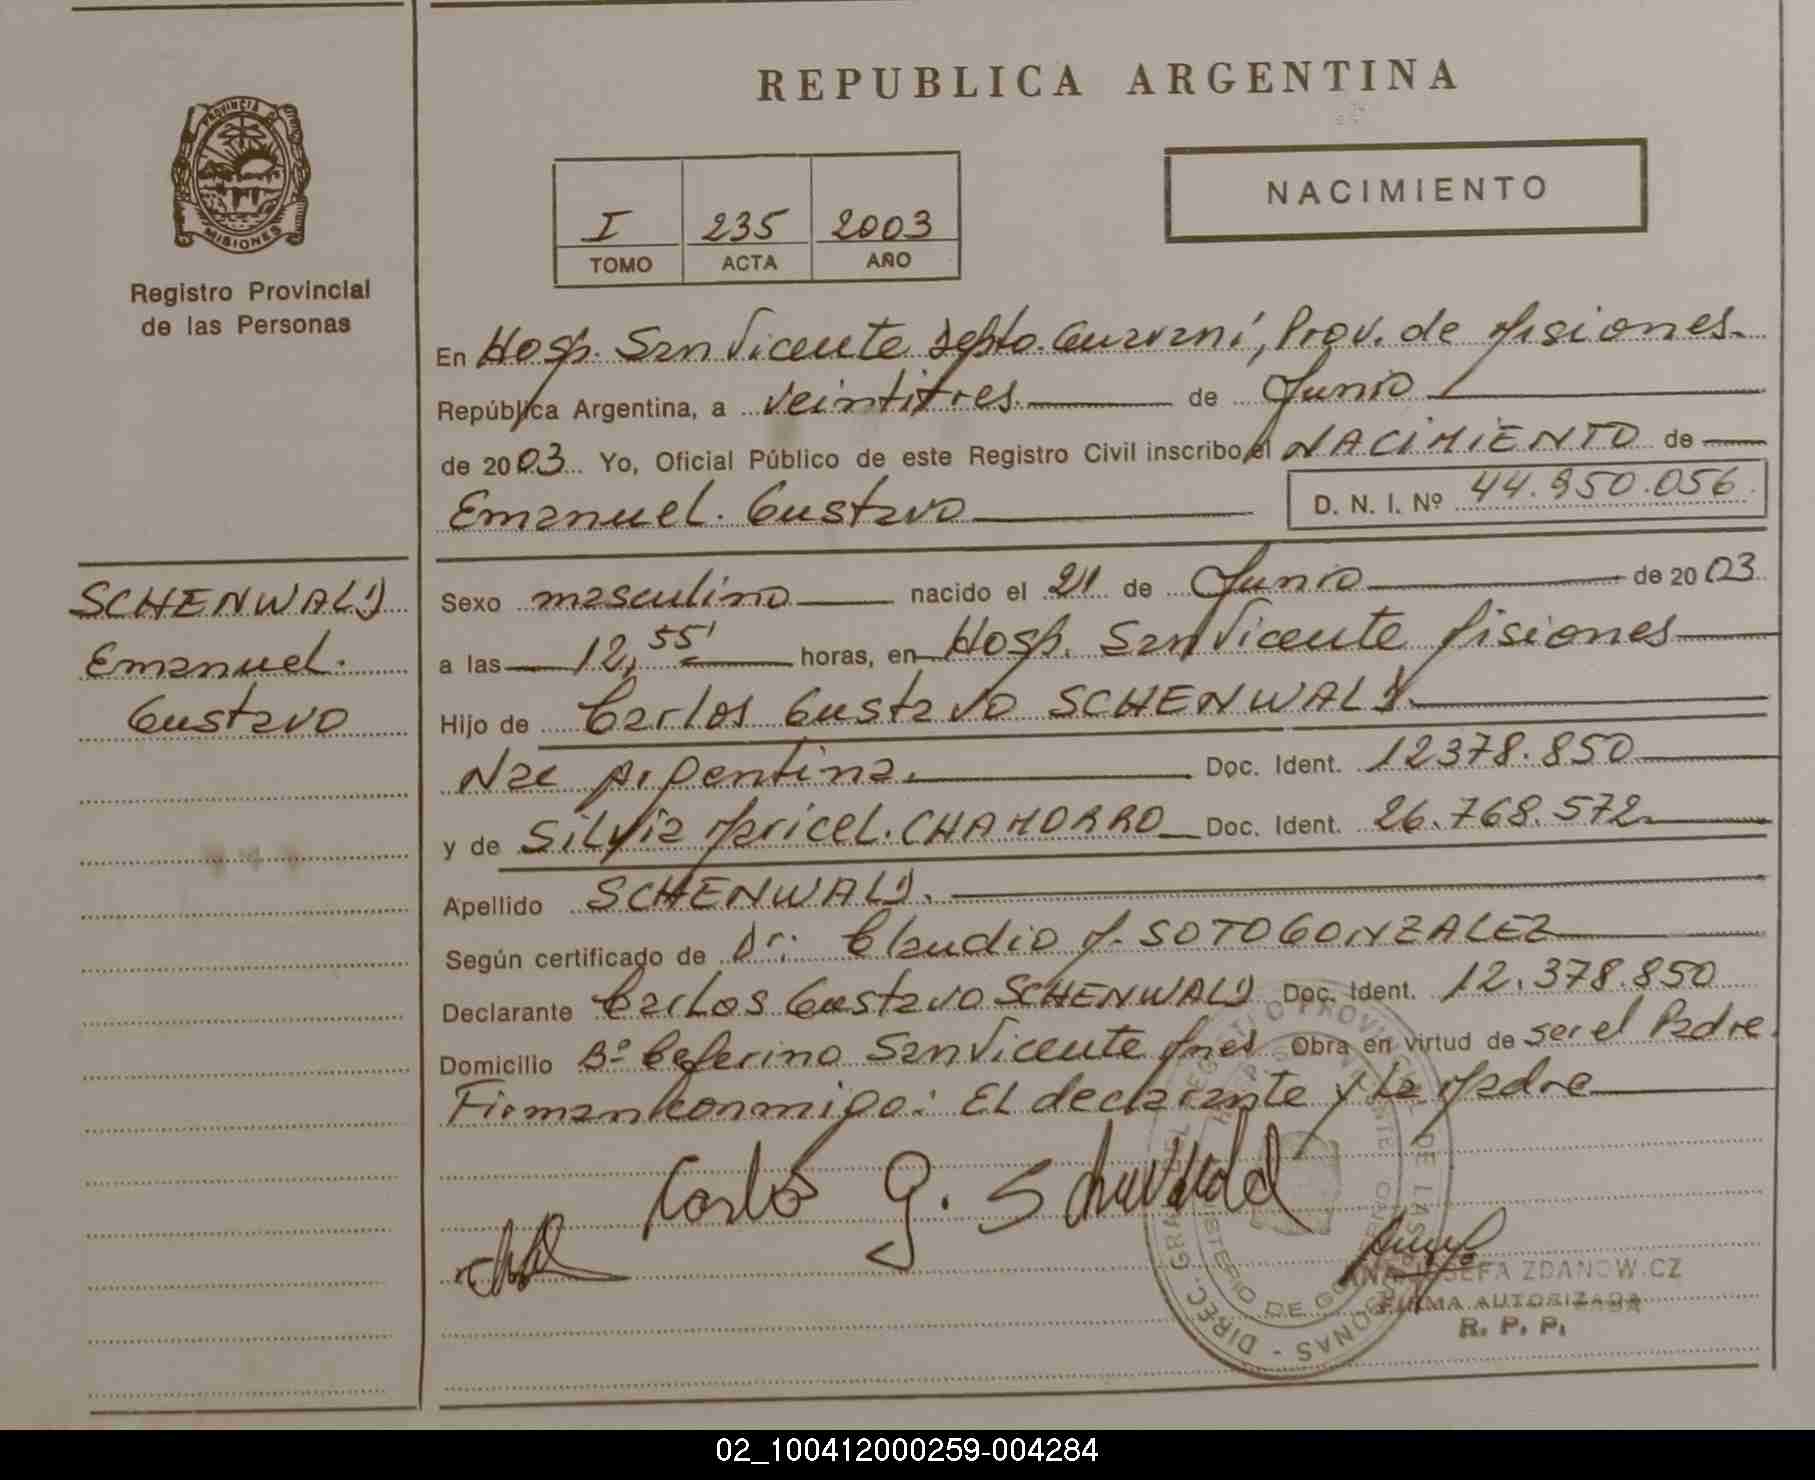 REPUBLICA ARGENTINA
PROVINCIA DE
MISIONES
Registro Provincial
de las Personas
NACIMIENTO
I 235 2003
TOMO ACTA AÑO
En Hosp. San Vicente Depto. Guarani, Prov. de Misiones.
República Argentina, a veintitres de Junio
de 2003 Yo, Oficial Público de este Registro Civil inscribo el NACIMIENTO de
Emanuel. Gustavo D. N. I. Nº 44.950.056
SCHENWALD
Emanuel.
Gustavo
Sexo masculino nacido el 21 de Junio de 2003
a las 12,55' horas, en Hosp. San Vicente Misiones
Hijo de Carlos Gustavo SCHENWALD
Nac Argentina. Doc. Ident. 12378.850
y de Silvia Maricel. CHAMORRO Doc. Ident. 26.768.572
Apellido SCHENWALD.
Según certificado de Dr: Claudio M. SOTO GONZALEZ
Declarante Carlos Gustavo SCHENWALD Doc. Ident. 12.378.850
Domicilio Bº Ceferino San Vicente Mnes Obra en virtud de ser el Padre.
Firman conmigo: El declarante y La Madre
Carlos G. Schenwald
FIRMA AUTORIZADA
R. P. P.
02_100412000259-004284